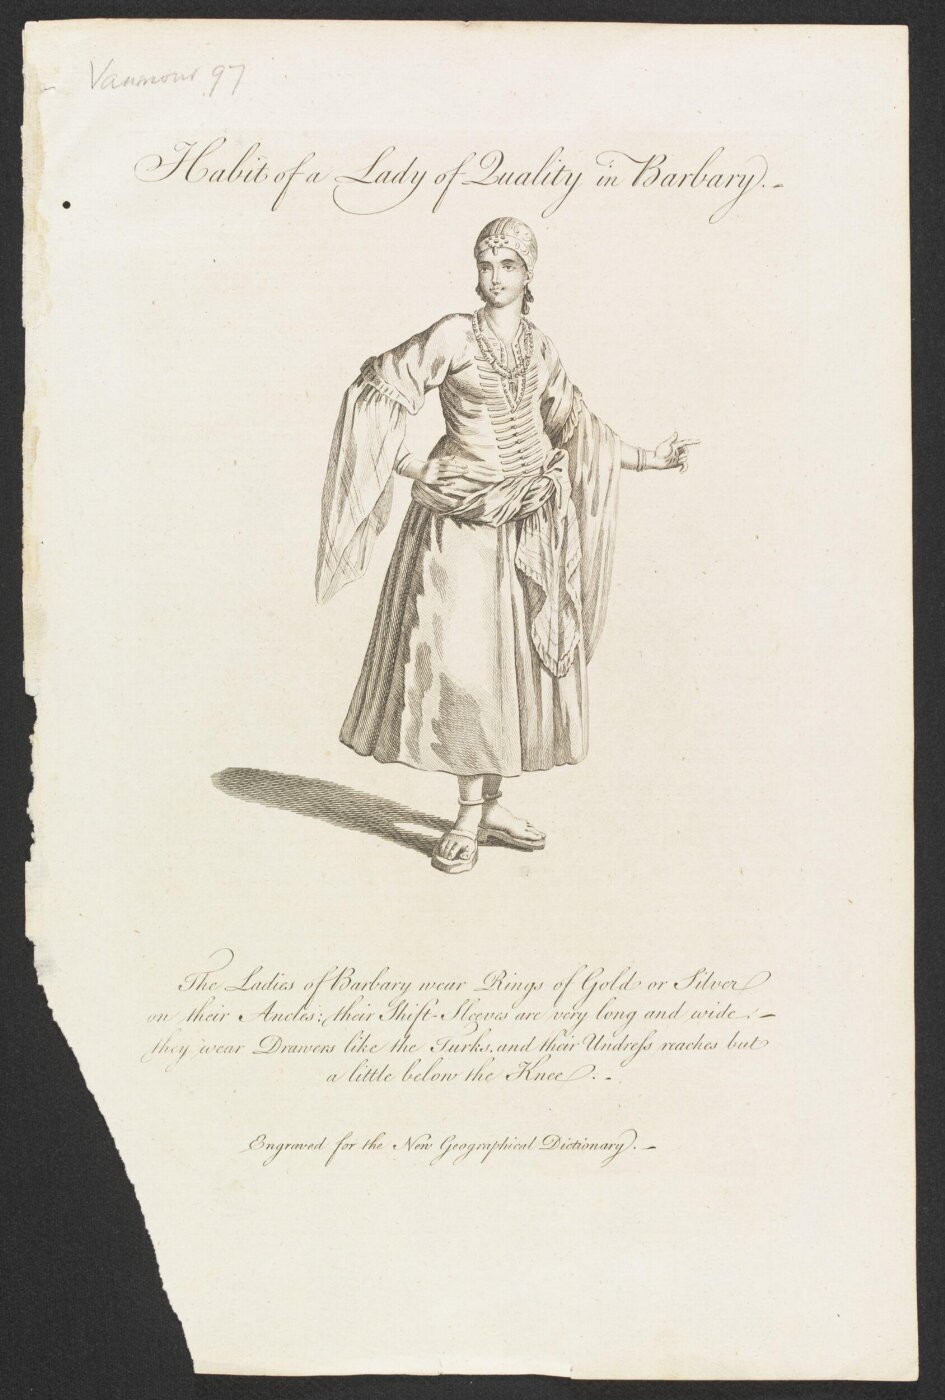 Vanmour 97
Habit of a Lady of Quality in Barbary.
The Ladies of Barbary wear Rings of Gold or Silver
on their Ancles: their Shift-Sleeves are very long and wide:
they wear Drawers like the Turks, and their Undreſs reaches but
a little below the Knee.
Engraved for the New Geographical Dictionary.